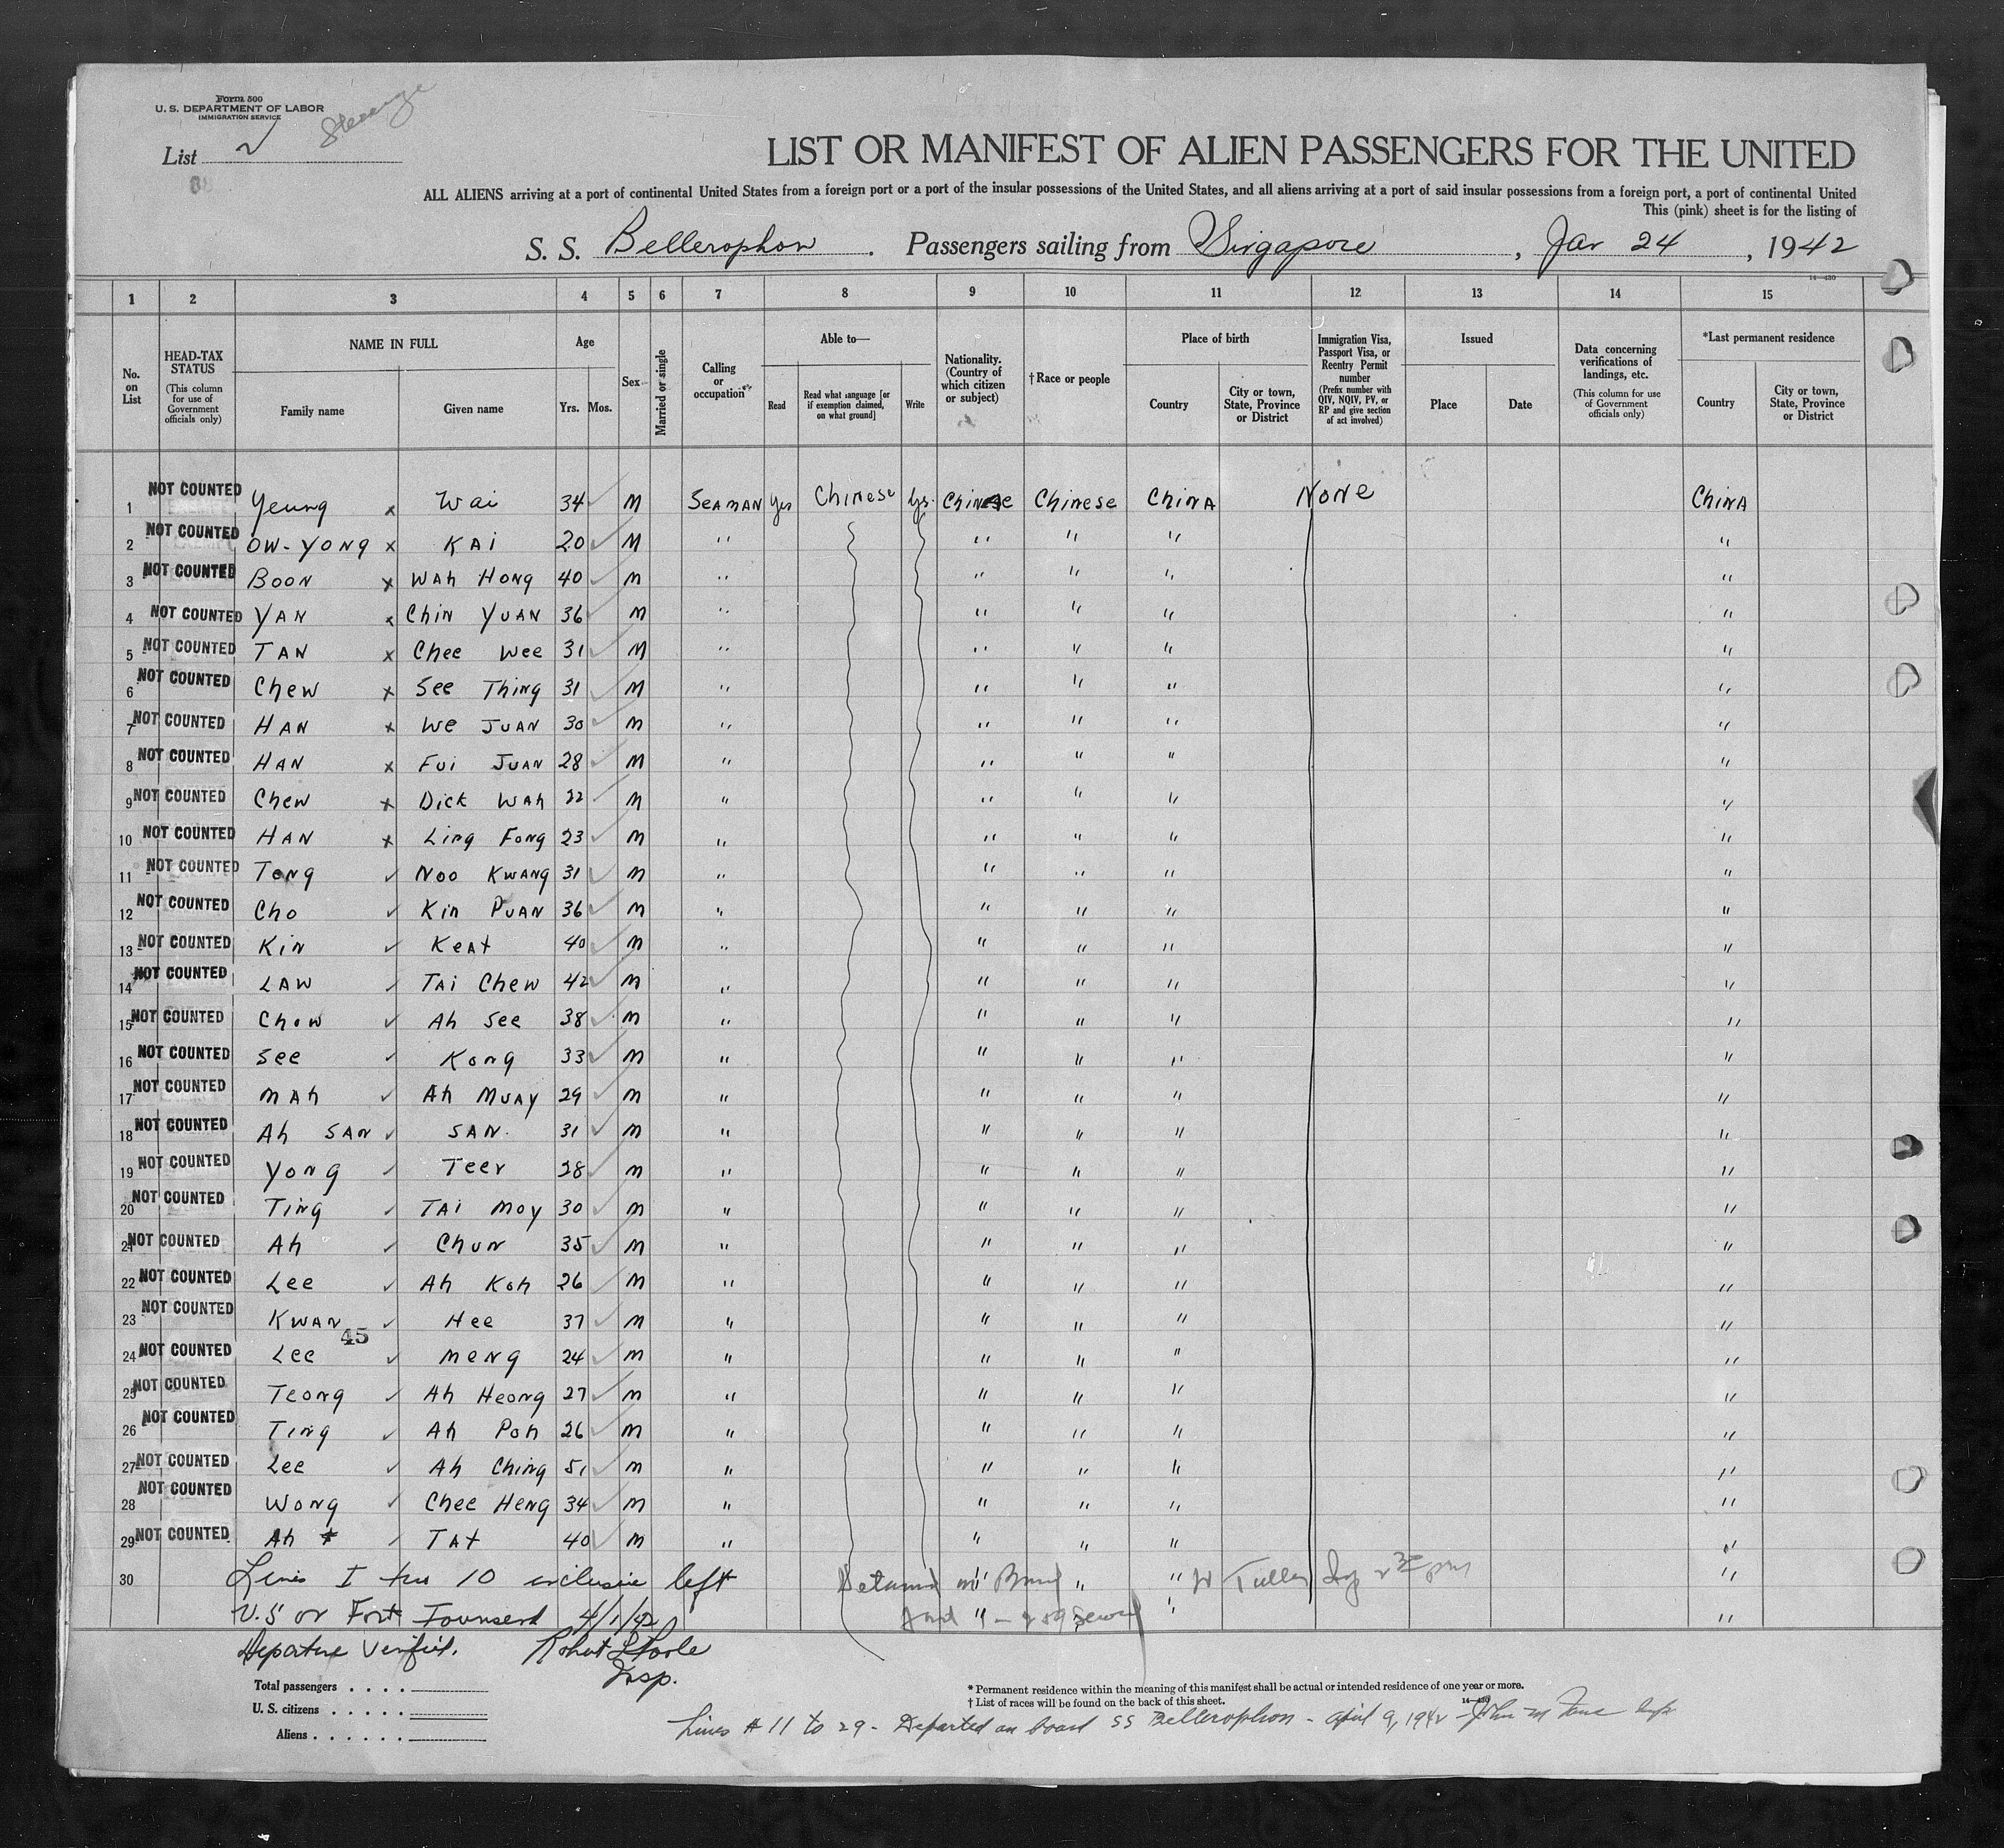 Form 500
U. S. DEPARTMENT OF LABOR
IMMIGRATION SERVICE
Steerage
List 2
LIST OR MANIFEST OF ALIEN PASSENGERS FOR THE UNITED
ALL ALIENS arriving at a port of continental United States from a foreign port or a port of the insular possessions of the United States, and all aliens arriving at a port of said insular possessions from a foreign port, a port of continental United
This (pink) sheet is for the listing of
S. S. Bellerophon . Passengers sailing from Singapore , Jan 24 , 1942
14—430
1 2 3 4 5 6 7 8 9 10 11 12 13 14 15
No. on List
HEAD-TAX STATUS (This column for use of Government officials only)
NAME IN FULL Family name Given name
Age Yrs. Mos.
Sex
Married or single
Calling or occupation
Able to— Read Read what language [or if exemption claimed, on what ground] Write
Nationality. (Country of which citizen or subject)
†Race or people
Place of birth Country City or town, State, Province or District
Immigration Visa, Passport Visa, or Reentry Permit number (Prefix number with QIV, NQIV, PV, or RP and give section of act involved)
Issued Place Date
Data concerning verifications of landings, etc. (This column for use of Government officials only)
*Last permanent residence Country City or town, State, Province or District
1 NOT COUNTED Yeung x Wai 34 ✓ M SEAMAN Yes Chinese Yes Chinese Chinese CHINA NONE CHINA
2 NOT COUNTED OW-YONG x KAI 20 ✓ M " " " " "
3 NOT COUNTED BOON x WAH HONG 40 ✓ M " " " " "
4 NOT COUNTED YAN x CHIN YUAN 36 ✓ M " " " " "
5 NOT COUNTED TAN x Chee Wee 31 ✓ M " " " " "
6 NOT COUNTED Chew x See Thing 31 ✓ M " " " " "
7 NOT COUNTED HAN x WE JUAN 30 ✓ M " " " " "
8 NOT COUNTED HAN x FUI JUAN 28 ✓ M " " " " "
9 NOT COUNTED Chew x Dick WAH 22 ✓ M " " " " "
10 NOT COUNTED HAN x Ling Fong 23 ✓ M " " " " "
11 NOT COUNTED Tong ✓ Noo KWANG 31 ✓ M " " " " "
12 NOT COUNTED Cho ✓ Kin PUAN 36 ✓ M " " " " "
13 NOT COUNTED Kin ✓ KEAt 40 ✓ M " " " " "
14 NOT COUNTED LAW ✓ TAI Chew 42 ✓ M " " " " "
15 NOT COUNTED Chow ✓ Ah See 38 ✓ M " " " " "
16 NOT COUNTED See ✓ Kong 33 ✓ M " " " " "
17 NOT COUNTED MAh ✓ Ah MUAY 29 ✓ M " " " " "
18 NOT COUNTED Ah SAN ✓ SAN. 31 ✓ M " " " " "
19 NOT COUNTED Yong ✓ Teer 28 ✓ M " " " " "
20 NOT COUNTED Ting ✓ TAI Moy 30 ✓ M " " " " "
21 NOT COUNTED Ah ✓ Chun 35 ✓ M " " " " "
22 NOT COUNTED Lee ✓ Ah Koh 26 ✓ M " " " " "
23 NOT COUNTED KWAN ✓ Hee 37 ✓ M " " " " "
45
24 NOT COUNTED Lee ✓ MENG 24 ✓ M " " " " "
25 NOT COUNTED Teong ✓ Ah Heong 27 ✓ M " " " " "
26 NOT COUNTED Ting ✓ Ah Poh 26 ✓ M " " " " "
27 NOT COUNTED Lee ✓ Ah Ching 51 ✓ M " " " " "
28 NOT COUNTED Wong ✓ Chee Heng 34 ✓ M " " " " "
29 NOT COUNTED Ah ✓ TAt 40 ✓ M " " " " "
30 Lines 1 thru 10 inclusive left Detained on Board " " W Tuller Insp 2 30 pm "
U.S or Fort Townsend 4/1/42 " "
Departure Verified. Robert Insp.
Total passengers . . . .
U. S. citizens . . . . .
Aliens . . . . . .
* Permanent residence within the meaning of this manifest shall be actual or intended residence of one year or more.
† List of races will be found on the back of this sheet.
14—430
Lines # 11 to 29 - Departed on board SS Bellerophon - April 9, 1942 - John M Insp